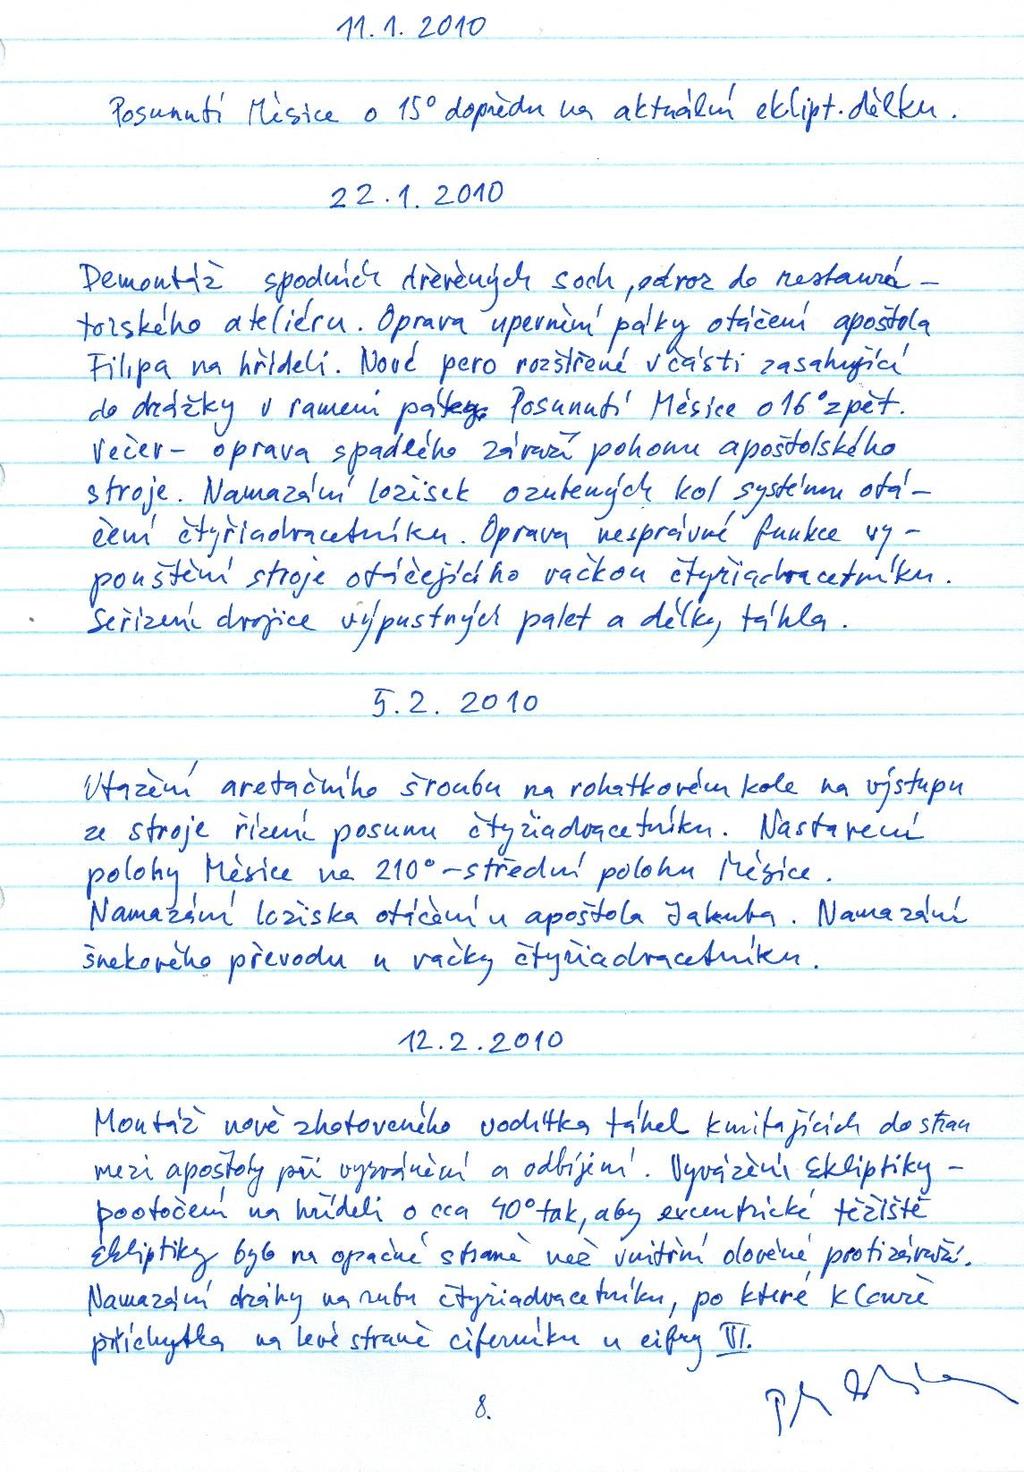 11.1.2010
Posunutí Měsíce o 15° dopředu na aktuální eklipt. délku.
22.1.2010
Demontáž spodních dřevěných soch, odvoz do restaurá-
torského ateliéru. Oprava upevnění páky otáčení apoštola
Filipa na hřídeli. Nové pero rozšířené v části zasahující
do drážky v rameni páky. Posunutí Měsíce o 16° zpět.
Večer - oprava spadlého závaží pohonu apoštolského
stroje. Namazání ložisek ozubených kol systému otá-
čení čtyřiadvacetníku. Oprava nesprávné funkce vy-
pouštění stroje otáčejícího vačkou čtyřiadvacetníku.
Seřízení dvojice výpustných palet a délky táhla.
5.2. 2010
Utažení aretačního šroubu na rohatkovém kole na výstupu
ze stroje řízení posunu čtyřiadvacetníku. Nastavení
polohy Měsíce na 210° - střední polohu Měsíce.
Namazání ložiska otáčení u apoštola Jakuba. Namazání
šnekového převodu u vačky čtyřiadvacetníku.
12.2.2010
Montáž nově zhotoveného vodítka táhel kmitajících do stran
mezi apoštoly při vyzvánění a odbíjení. Vyvážení Ekliptiky -
pootočení na hřídeli o cca 40° tak, aby excentrické těžiště
Ekliptiky bylo na opačné straně než vnitřní olověné protizávaží.
Namazání dráhy na rubu čtyřiadvacetníku, po které klouže
příchytka na levé straně ciferníku u cifry VI.
8.